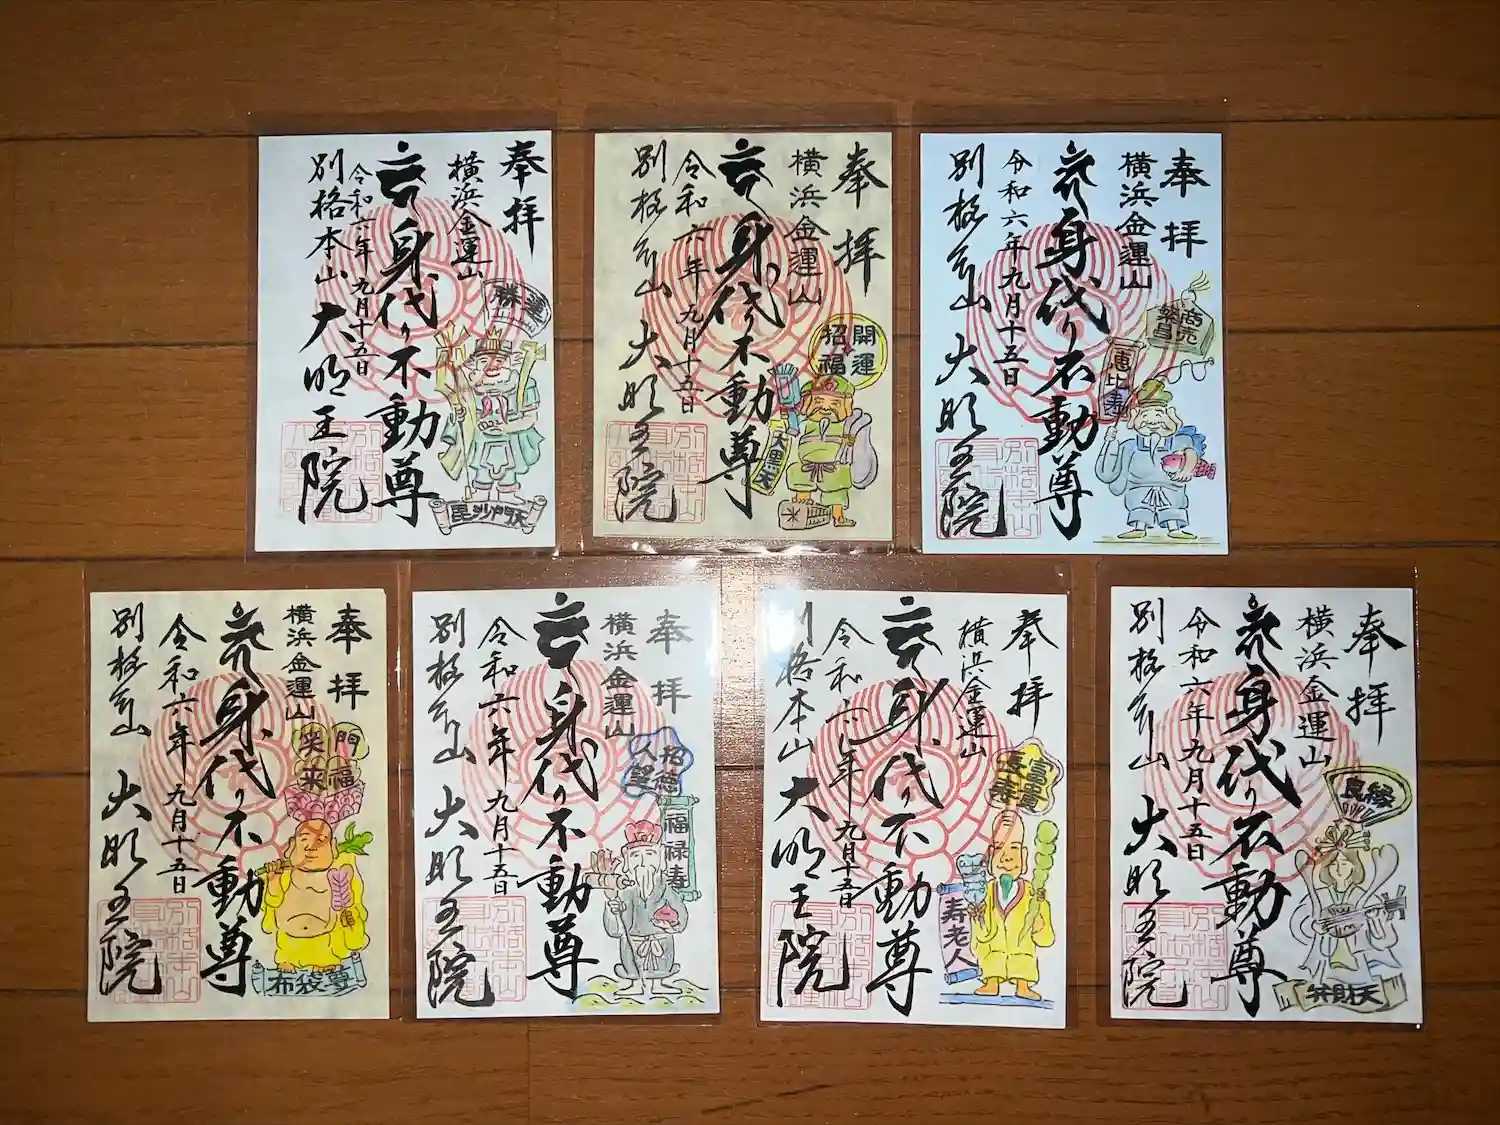 奉拝
横浜金運山
身代り不動尊
令和六年九月十五日
別格本山 大明王院
勝運
毘沙門天
奉拝
横浜金運山
身代り不動尊
令和六年九月十五日
別格本山 大明王院
開運
招福
大黒天
奉拝
横浜金運山
身代り不動尊
令和六年九月十五日
別格本山 大明王院
商売
繁昌
恵比寿
奉拝
横浜金運山
身代り不動尊
令和六年九月十五日
別格本山 大明王院
門福
笑来
布袋尊
奉拝
横浜金運山
身代り不動尊
令和六年九月十五日
別格本山 大明王院
招徳
人望
福禄寿
奉拝
横浜金運山
身代り不動尊
令和六年九月十五日
格本山 大明王院
富貴
長寿
寿老人
奉拝
横浜金運山
身代り不動尊
令和六年九月十五日
別格本山 大明王院
良縁
弁財天